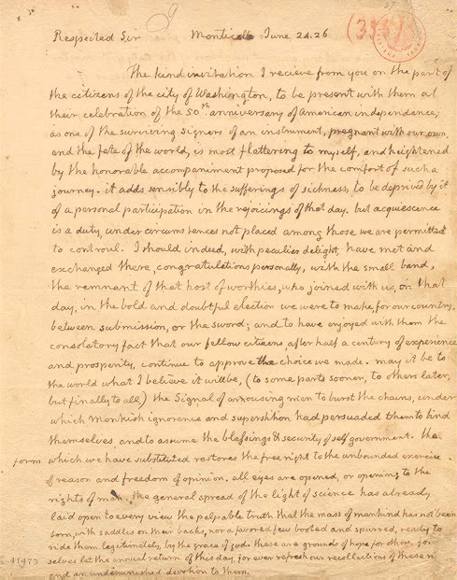 Respected Sir Monticello June 24. 26
The kind invitation I recieve from you on the part of
the citizens of the city of Washington, to be present with them at
their celebration of the 50th anniversary of American independence;
as one of the surviving signers of an instrument, pregnant with our own,
and the fate of the world, is most flattering to myself, and heightened
by the honorable accompaniment proposed for the comfort of such a
journey. it adds sensibly to the sufferings of sickness, to be deprived by it
of a personal participation in the rejoicings of that day. but acquiescence
is a duty, under circumstances not placed among those we are permitted
to controul. I should indeed, with peculiar delight, have met and
exchanged there, congratulations personally, with the small band,
the remnant of that host of worthies, who joined with us, on that
day, in the bold and doubtful election we were to make, for our country,
between submission, or the sword; and to have enjoyed with them the
consolatory fact that our fellow citizens, after half a century of experience
and prosperity, continue to approve the choice we made. may it be to
the world what I believe it will be, (to some parts sooner, to others later,
but finally to all,) the Signal of arousing men to burst the chains, under
which Monkish ignorance and superstition had persuaded them to bind
themselves, and to assume the blessings & security of self government. the
form which we have substituted restores the free right to the unbounded exercise
of reason and freedom of opinion. all eyes are opened, or opening to the
rights of man. the general spread of the light of science has already
laid open to every view the palpable truth that the mass of mankind has not been
born, with saddles on their backs, nor a favored few booted and spurred, ready to
ride them legitimately, by the grace of god. these are grounds of hope for others. for
selves let the annual return of this day, for ever refresh our recollections of these
and an undiminished devotion to them.